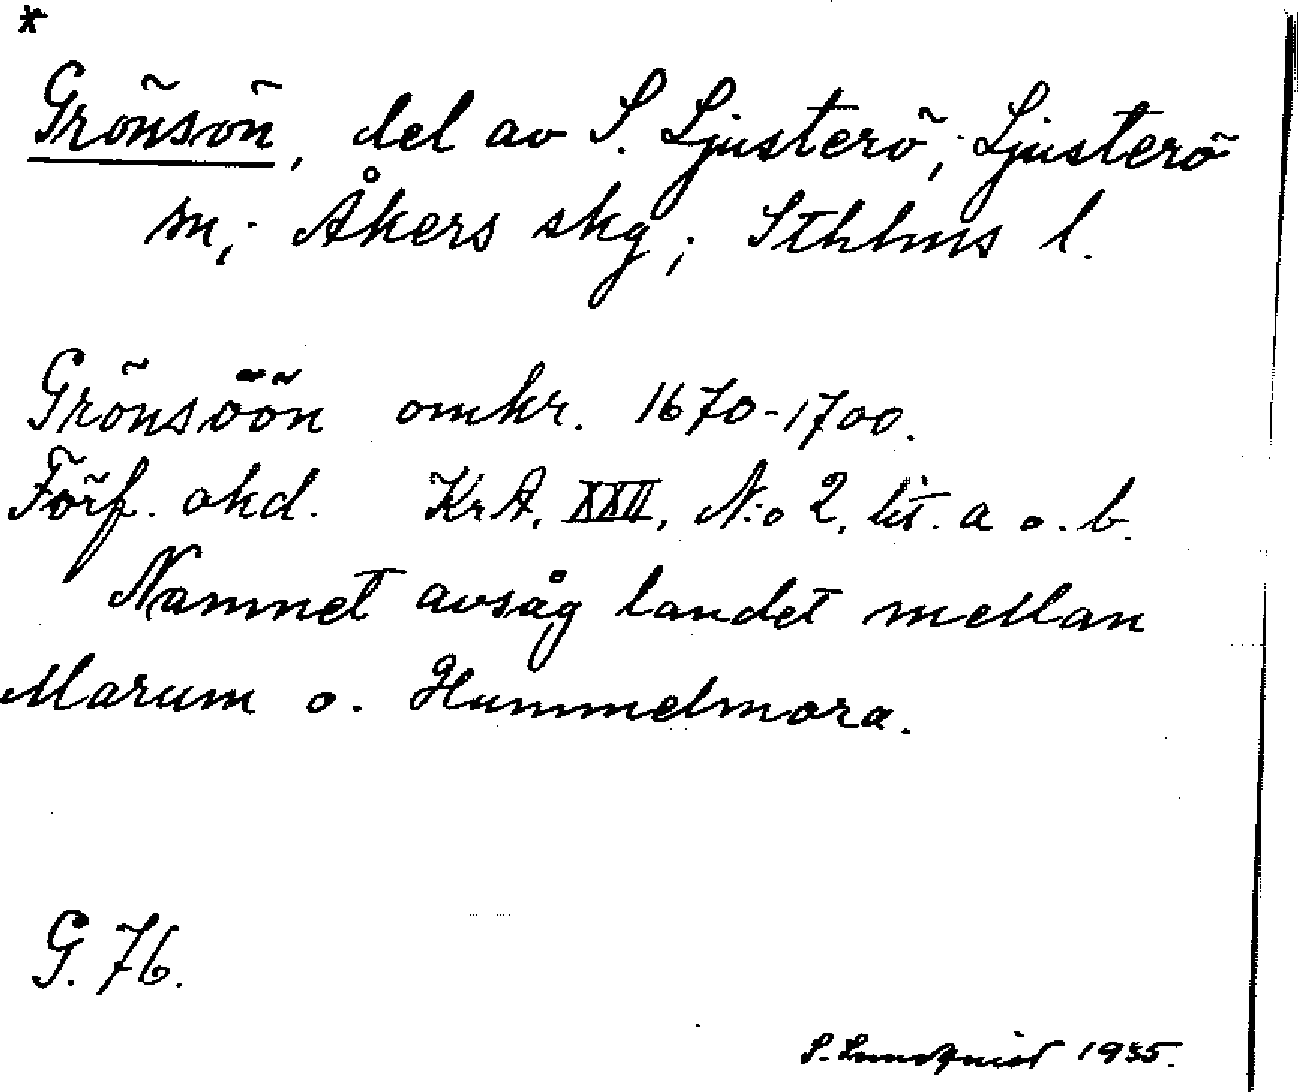 *
Grönsön, del av S. Ljusterö; Ljusterö
sn; Åkers skg; Sthlms l.
Grönsöön omkr. 1670-1700.
Förf. okd. Kr.A. XXII, N:o 2, lit. a o. b.
Namnet avsåg landet mellan
Marum o. Hummelmora.
G. 76.
S. Lundqvist 1935.